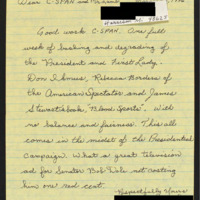 Dear C-SPAN and
Good work C-SPAN. One full
week of bashing and degrading of
the President and First Lady.
Don Imus, Rebecca Borders of
the American Spectator and James
Stewart's book, "Blood Sport". With
no balance and fairness. This all
comes in the midst of the Presidential
Campaign. What a great television
ad for Senator Bob Dole not costing
him one red cent.
Respectfully Yours